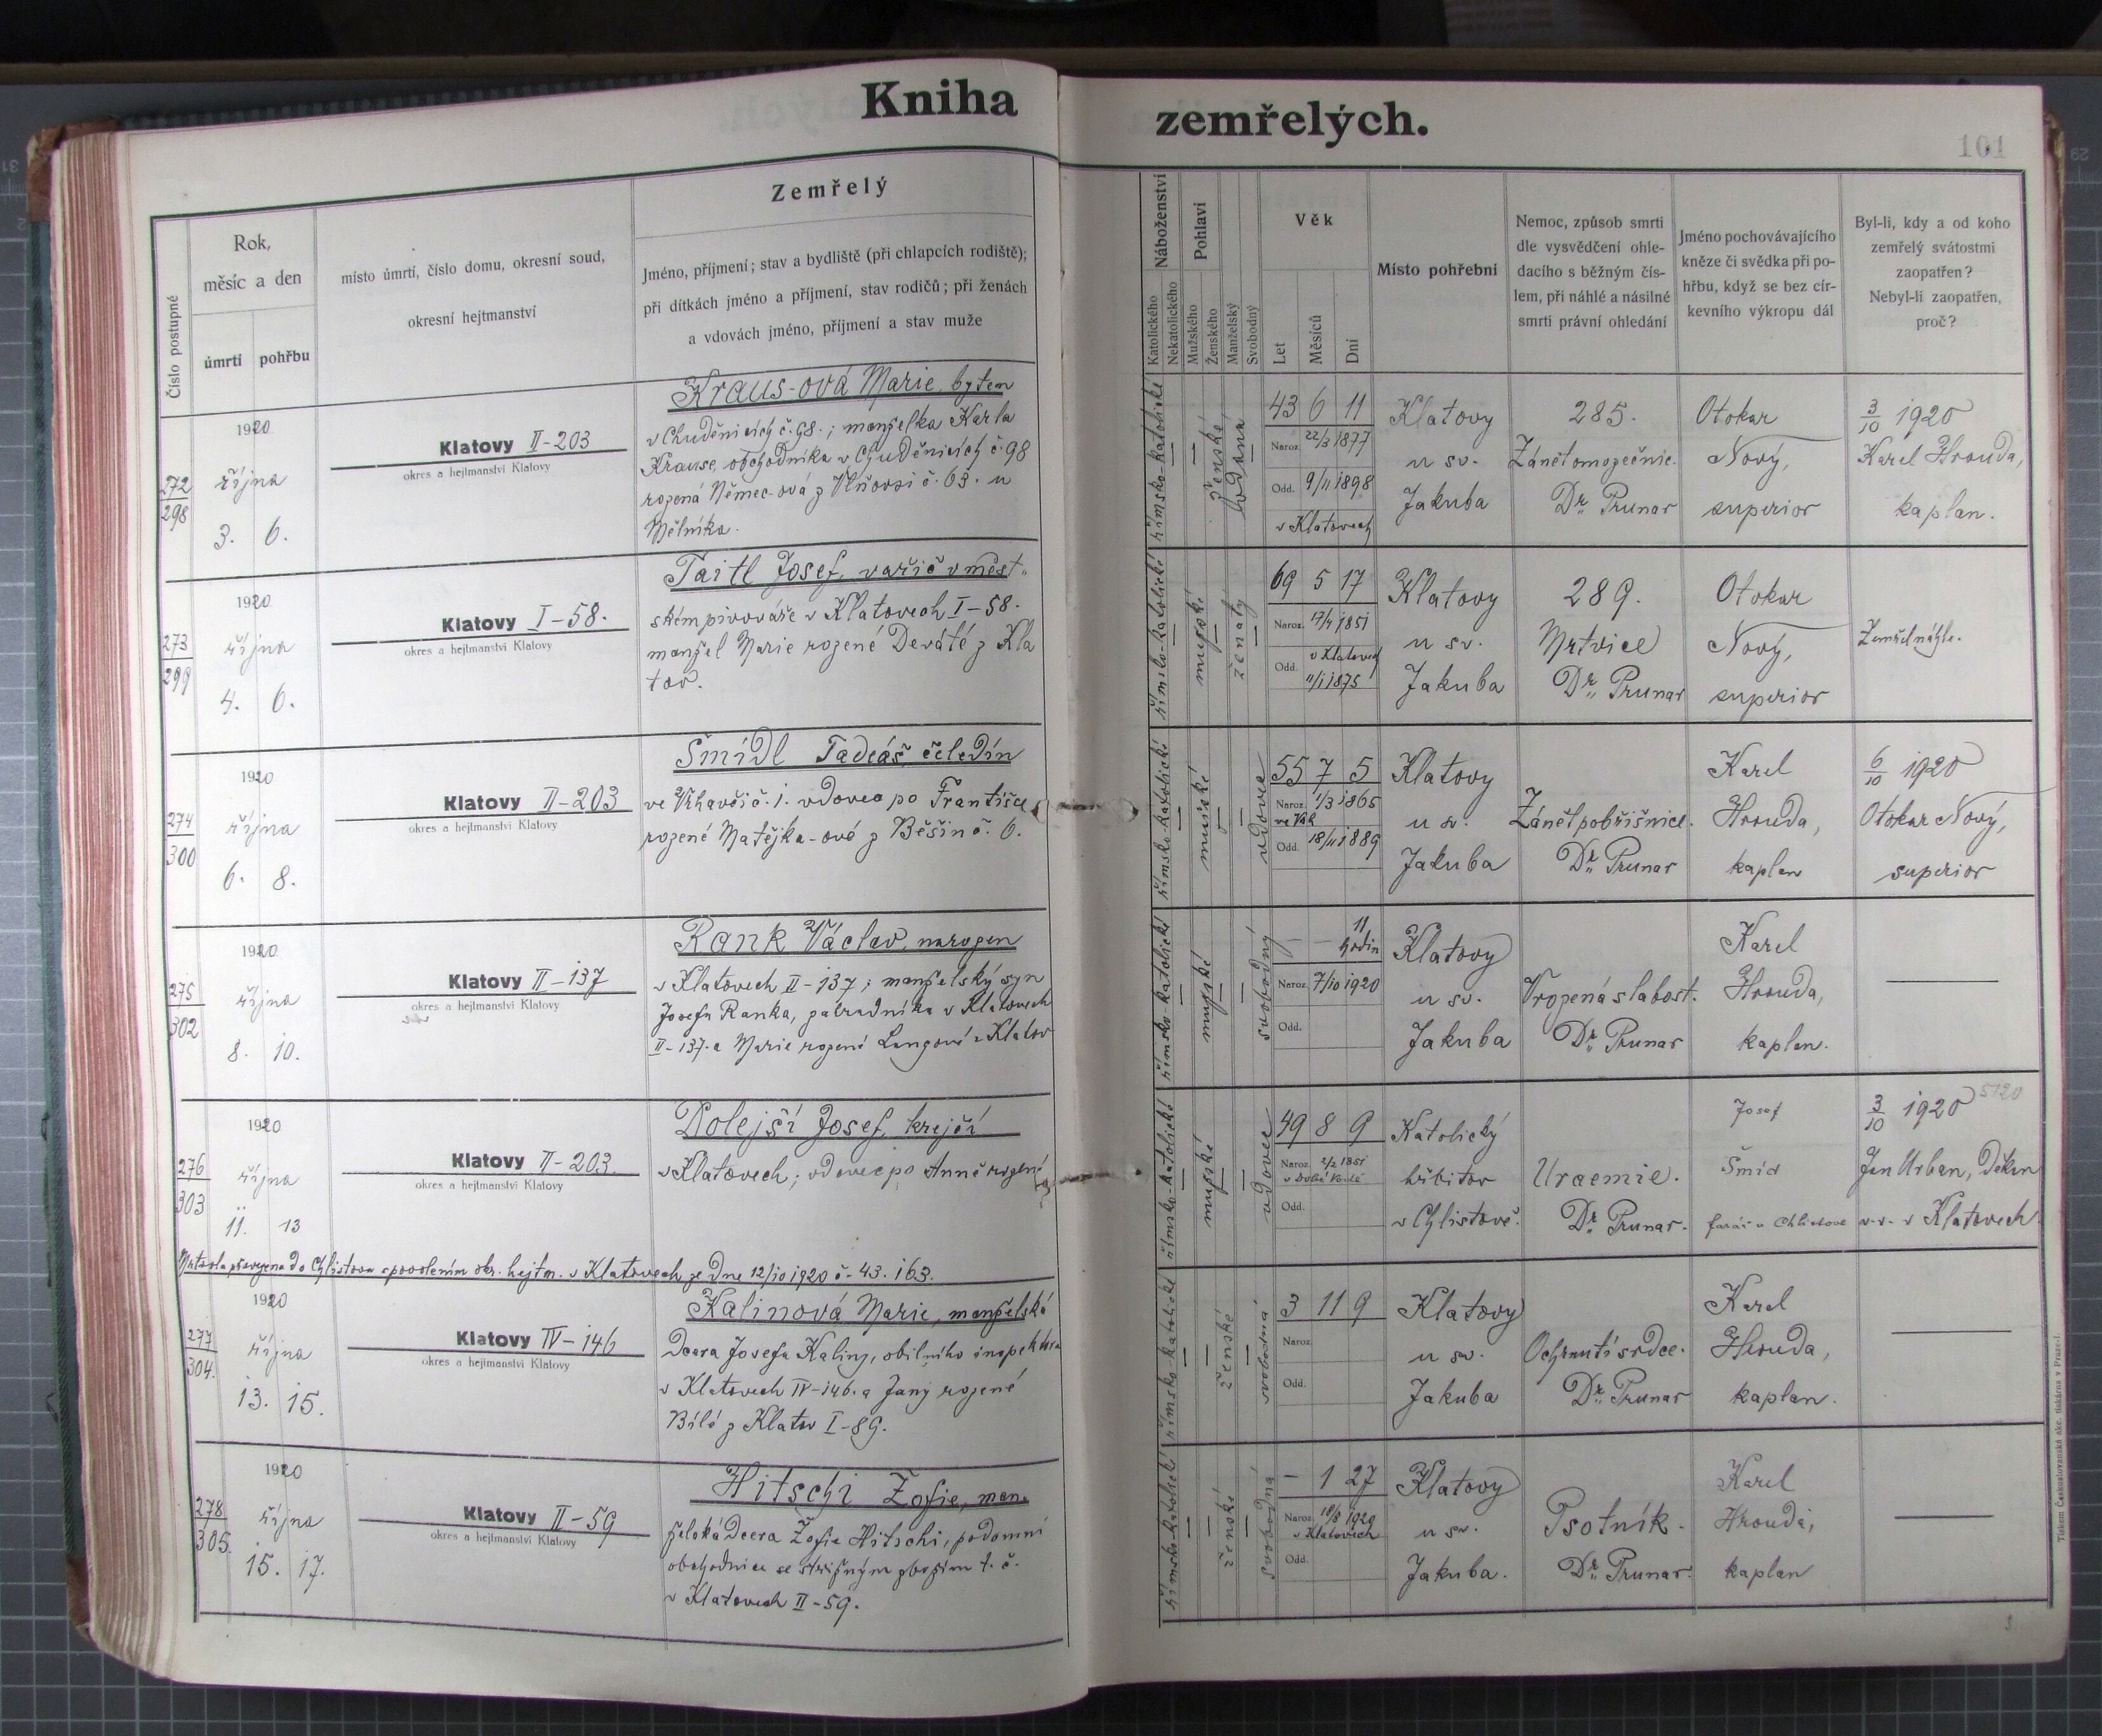 Kniha zemřelých.
101
Číslo postupné
Rok,
měsíc a den
úmrtí
pohřbu
místo úmrtí, číslo domu, okresní soud,
okresní hejtmanství
Zemřelý
Jméno, příjmení; stav a bydliště (při chlapcích rodiště);
při dítkách jméno a příjmení, stav rodičů; při ženách
a vdovách jméno, příjmení a stav muže
Náboženství
Katolického
Nekatolického
Pohlaví
Mužského
Ženského
Manželský
Svobodný
Věk
Let
Měsíců
Dní
Místo pohřební
Nemoc, způsob smrti
dle vysvědčení ohle-
dacího s běžným čís-
lem, při náhlé a násilné
smrti právní ohledání
Jméno pochovávajícího
kněze či svědka při po-
hřbu, když se bez cír-
kevního výkropu dál
Byl-li, kdy a od koho
zemřelý svátostmi
zaopatřen?
Nebyl-li zaopatřen,
proč?
272
298
1920
října
3. 6.
Klatovy II-203
okres a hejtmanství Klatovy
Kraus-ová Marie, bytem
v Chuděnicích č. 98.; manželka Karla
Krause, obchodníka v Chuděnicích č. 98
rozená Němec-ová z č. 63. u
Mělníka.
římsko-katolické
ženské
vdaná
43 6 11
Naroz. 22/3 1877
Odd. 9/11 1898
v Klatovech
Klatovy
u sv.
Jakuba
285.
Zánět omozečnic.
Dr. Prunar
Otokar
Nový,
superior
3/10 1920
Karel Hrouda,
kaplan.
273
299
1920
října
4. 6.
Klatovy I-58.
okres a hejtmanství Klatovy
Taitl Josef, vařič v měst-
ském pivováře v Klatovech I-58.
manžel Marie rozené Deváté z Kla
tov.
římsko-katolické
mužské
ženatý
69 5 17
Naroz. 17/4 1851
v Klatovech
Odd. 11/1 1875
Klatovy
u sv.
Jakuba
289.
Mrtvice
Dr. Prunar
Otokar
Nový,
superior
Zemřel náhle.
274
300
1920
října
6. 8.
Klatovy II-203
okres a hejtmanství Klatovy
Šmídl Tadeáš, čeledín
ve Vrhavči č. 1. vdovec po Františce
rozené Matějka-ové z Běšin č. 6.
římsko-katolické
mužské
vdovec
55 7 5
Naroz. 1/3 1865
Odd. 18/11 1889
Klatovy
u sv.
Jakuba
Zánět pobřišnice.
Dr. Prunar
Karel
Hrouda,
kaplan
6/10 1920
Otokar Nový,
superior
275
302
1920
října
8. 10.
Klatovy II-137
okres a hejtmanství Klatovy
Rank Václav, narozen
v Klatovech II-137; manželský syn
Josefa Ranka, zahradníka v Klatovech
II-137. a Marie rozené Langové z Klatov
římsko-katolické
mužské
svobodný
— — 11
hodin
Naroz. 7/10 1920
Odd.
Klatovy
u sv.
Jakuba
Vrozená slabost.
Dr. Prunar
Karel
Hrouda,
kaplan.
276
303
1920
října
11. 13
Klatovy II-203.
okres a hejtmanství Klatovy
Dolejší Josef, krejčí
v Klatovech; vdovec po Anně rozené
římsko-katolické
mužské
vdovec
49 8 9
Naroz. 2/2 1851
Odd.
Katolický
hřbitov
v Chlistově.
Uraemie.
Dr. Prunar.
Josef
Šmíd
farář v Chlistově
3/10 1920
5120
Jan Urban, děkan
v. v. v Klatovech
Mrtvola převezena do Chlistova s povolením okr. hejtm. v Klatovech ze dne 12/10 1920 č. 43.163.
277
304.
1920
října
13. 15.
Klatovy IV-146
okres a hejtmanství Klatovy
Kalinová Marie, manželská
dcera Josefa Kaliny, obilního inspektora
v Klatovech IV-146. a Jany rozené
Bílé z Klatov I-89.
římsko-katolické
ženské
svobodná
3 11 9
Naroz.
Odd.
Klatovy
u sv.
Jakuba
Ochrnutí srdce.
Dr. Prunar
Karel
Hrouda,
kaplan.
278
305.
1920
října
15. 17.
Klatovy II-59
okres a hejtmanství Klatovy
Hitschi Žofie, man-
želská dcera Žofie Hitschi, podomní
obchodnice se střižným zbožím t. č.
v Klatovech II-59.
římsko-katolické
ženské
svobodná
— 1 27
Naroz. 18/8 1920
v Klatovech
Odd.
Klatovy
u sv.
Jakuba.
Psotník.
Dr. Prunar.
Karel
Hrouda,
kaplan
Tiskem Českoslovanská akc. tiskárna v Praze-I.